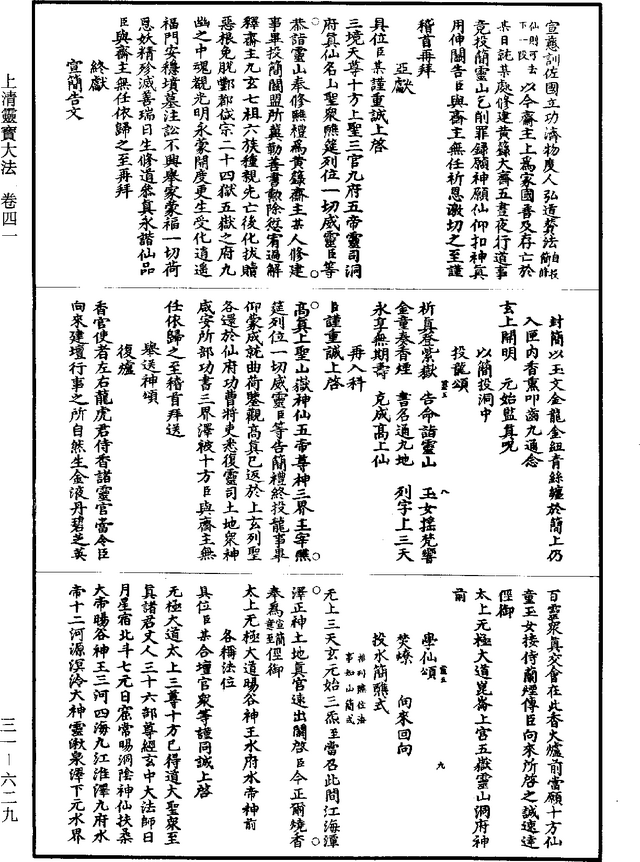 宣慈訓佐國立功濟物度人弘道葬法
仙則可去
下一段
以今齋主上爲家國善及存亡於
某日託某處修建黃籙大齋五晝夜行道事
竟投簡靈山乞削罪録願神願仙仰扣神眞
用伸關告臣與齋主無任祈恩激切之至謹
稽首再拜
亞獻
具位臣某謹重誠上啓
三境天尊十方上聖三官九府五帝靈司洞
府眞仙名山聖衆醮筵列位一切威靈臣等
恭詣靈山奉修醮禮爲黃籙齋主某人修建
事畢投簡關盟所冀勤善書勲除愆宥過解
釋齋主九玄七祖六族種親先亡後化拔贖
惡根免脫酆都嶽宗二十四獄五獄之府九
幽之中魂觀光明永蒙開度更生受化逍遙
福門安穩墳墓注訟不興舉家蒙福一切荷
恩妖精殄滅善瑞日生修道叅眞永諧仙品
臣與齋主無任依歸之至再拜
終獻
宣簡告文
封簡以玉文金龍金紐青絲纏於簡上仍
入匣內香熏叩齒九通念
玄上開明 元始監眞呪
以簡投洞中
投龍頌
祈眞登紫嶽 告命詣靈山 玉女揺梵響
金童奏香煙 書名通九地 列字上三天
永享無期壽 克成髙上仙
再入科
臣謹重誠上啓
高眞上聖山嶽神仙五帝尊神三界王宰醮
筵列位一切威靈臣等告簡禮終投龍事畢
仰蒙成就曲荷鑒觀高眞已返於上玄列聖
各還於仙府功曹將吏悉復靈司土地衆神
咸安所部功書三界澤被十方臣與齋主無
任依歸之至稽首拜送
舉送神頌
復爐
香官使者左右龍虎君侍香諸靈官當令臣
向來建壇行事之所自然生金液丹碧芝英
百靈衆眞交會在此香火爐前當願十方仙
童玉女接侍蘭煙傳臣向來所啓之誠速達
徑御
太上元極大道崑崙上宮五嶽靈山洞府神
前
學仙頌
焚燎 向來回向
投水簡醮式
無上三天玄元始三炁至當召此間江海潭
澤正神土地眞官速出關啓臣今正爾燒香
奉爲
徑御
太上元極大道暘谷神王水府水帝神前
各稱法位
具位臣某合壇官衆等謹同誠上啓
元極大道太上三尊十方已得道大聖衆至
眞諸君丈人三十六部尊經玄中大法師日
月星宿北斗七元日窟常暘洞陰神仙扶桑
大帝暘谷神王三河四海九江淮澤九府水
帝十二河源溟泠大神靈湫泉澤下元水界
上清靈寶大法 卷四一
三一－六二九